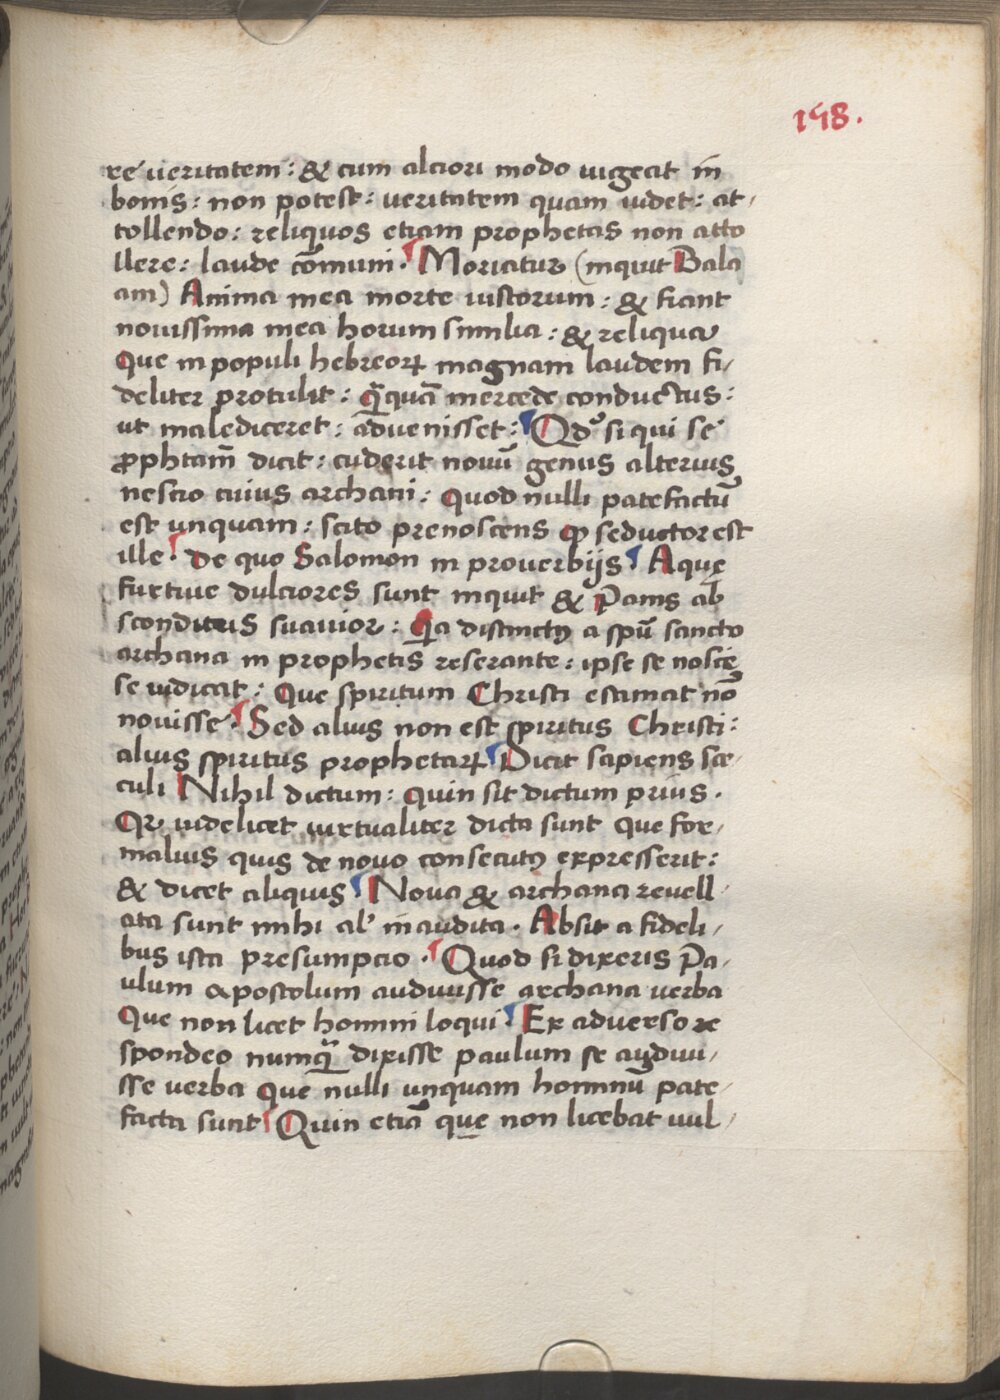 158.
re ueritatem: & cum alciori modo uigeat in
bonis: non potest: ueritatem quam uidet: at,
tollendo: reliquos etiam prophetas non atto
llere: laude cōmuni. Moriatur (inquit Bala
am) Anima mea morte iustorum: & fiant
nouissima mea horum similia: & reliqua
Que in populi hebreoꝝ magnam laudem fi,
deliter protulit: q̄quā mercede conductus:
ut malediceret: aduenisset: Qd° si qui se
ꝓphtam̄ dicit: cuderit nouū genus alterius
nescio cuius archani: Quod nulli patefactū
est unquam: scito prenoscens ꝙ seductor est
ille. De quo Salomon in prouerbijs Aquę
furtiue dulciores sunt inquit & Panis ab
sconditus suauior: Q̄a distinctꝰ a spū sancto
archana in prophetis reserante: ipse se noscę
se iudicat: Que spiritum Christi estimat nō
nouisse. Sed alius non est spiritus Christi:
alius spiritus prophetaꝝ Dicit sapiens sæ,
culi Nihil dictum: Quin sit dictum prius.
Qꝛ uidelicet uirtualiter dicta sunt que for,
malius quis de nouo consecutꝰ expresserit:
& dicet aliquis Noua & archana reuell,
ata sunt mihi al' inaudita. Absit a fideli,
bus ista presumpcio. Quod si dixeris Pa,
ulum apostolum audiuisse archana uerba
Que non licet homini loqui: Ex aduerso re
spondeo numq̄ dixisse paulum se audiui,
sse uerba Que nulli unquam hominū pate,
facta sunt Quin etiā quę non licebat uul,